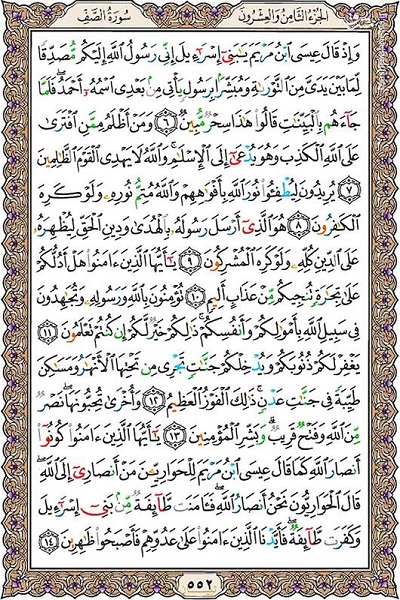 الجُزءُ الثَّامِنُ وَالعِشرُونَ سُورَةُ الصَّفِّ
وَإِذْ قَالَ عِيسَى ابْنُ مَرْيَمَ يَٰبَنِىٓ إِسْرَٰٓءِيلَ إِنِّى رَسُولُ ٱللَّهِ إِلَيْكُم مُّصَدِّقًا
لِّمَا بَيْنَ يَدَىَّ مِنَ ٱلتَّوْرَىٰةِ وَمُبَشِّرًۢا بِرَسُولٍ يَأْتِى مِنۢ بَعْدِى ٱسْمُهُۥٓ أَحْمَدُ ۖ فَلَمَّا
جَآءَهُم بِٱلْبَيِّنَٰتِ قَالُوا۟ هَٰذَا سِحْرٌ مُّبِينٌ ٦ وَمَنْ أَظْلَمُ مِمَّنِ ٱفْتَرَىٰ
عَلَى ٱللَّهِ ٱلْكَذِبَ وَهُوَ يُدْعَىٰٓ إِلَى ٱلْإِسْلَٰمِ ۚ وَٱللَّهُ لَا يَهْدِى ٱلْقَوْمَ ٱلظَّٰلِمِينَ
٧ يُرِيدُونَ لِيُطْفِـُٔوا۟ نُورَ ٱللَّهِ بِأَفْوَٰهِهِمْ وَٱللَّهُ مُتِمُّ نُورِهِۦ وَلَوْ كَرِهَ
ٱلْكَٰفِرُونَ ٨ هُوَ ٱلَّذِىٓ أَرْسَلَ رَسُولَهُۥ بِٱلْهُدَىٰ وَدِينِ ٱلْحَقِّ لِيُظْهِرَهُۥ
عَلَى ٱلدِّينِ كُلِّهِۦ وَلَوْ كَرِهَ ٱلْمُشْرِكُونَ ٩ يَٰٓأَيُّهَا ٱلَّذِينَ ءَامَنُوا۟ هَلْ أَدُلُّكُمْ
عَلَىٰ تِجَٰرَةٍ تُنجِيكُم مِّنْ عَذَابٍ أَلِيمٍ ١٠ تُؤْمِنُونَ بِٱللَّهِ وَرَسُولِهِۦ وَتُجَٰهِدُونَ
فِى سَبِيلِ ٱللَّهِ بِأَمْوَٰلِكُمْ وَأَنفُسِكُمْ ۚ ذَٰلِكُمْ خَيْرٌ لَّكُمْ إِن كُنتُمْ تَعْلَمُونَ ١١
يَغْفِرْ لَكُمْ ذُنُوبَكُمْ وَيُدْخِلْكُمْ جَنَّٰتٍ تَجْرِى مِن تَحْتِهَا ٱلْأَنْهَٰرُ وَمَسَٰكِنَ
طَيِّبَةً فِى جَنَّٰتِ عَدْنٍ ۚ ذَٰلِكَ ٱلْفَوْزُ ٱلْعَظِيمُ ١٢ وَأُخْرَىٰ تُحِبُّونَهَا ۖ نَصْرٌ
مِّنَ ٱللَّهِ وَفَتْحٌ قَرِيبٌ ۗ وَبَشِّرِ ٱلْمُؤْمِنِينَ ١٣ يَٰٓأَيُّهَا ٱلَّذِينَ ءَامَنُوا۟ كُونُوٓا۟
أَنصَارَ ٱللَّهِ كَمَا قَالَ عِيسَى ٱبْنُ مَرْيَمَ لِلْحَوَارِيِّـۧنَ مَنْ أَنصَارِىٓ إِلَى ٱللَّهِ ۖ
قَالَ ٱلْحَوَارِيُّونَ نَحْنُ أَنصَارُ ٱللَّهِ ۖ فَـَٔامَنَت طَّآئِفَةٌ مِّنۢ بَنِىٓ إِسْرَٰٓءِيلَ
وَكَفَرَت طَّآئِفَةٌ ۖ فَأَيَّدْنَا ٱلَّذِينَ ءَامَنُوا۟ عَلَىٰ عَدُوِّهِمْ فَأَصْبَحُوا۟ ظَٰهِرِينَ ١٤
٥٥٢